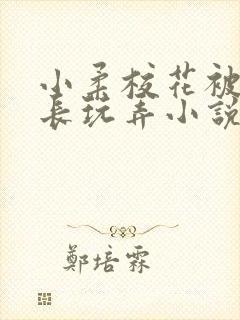 小柔校花被
长玩弄小説
鄭培霖